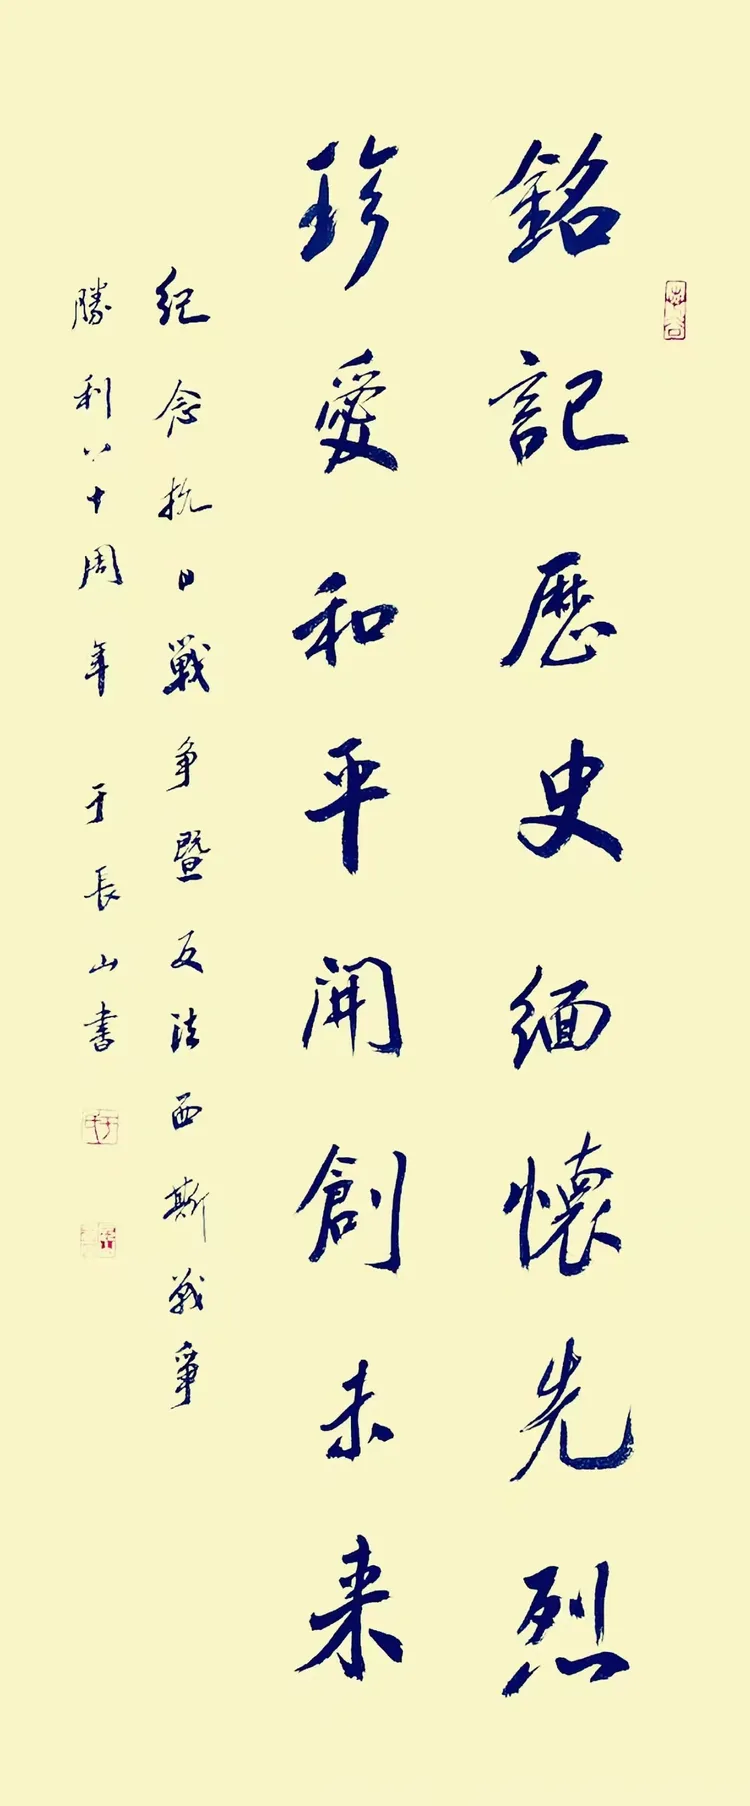 銘記歷史緬懷先烈
珍愛和平開創未来
纪念抗日戰争暨反法西斯戰爭
勝利八十周年 于長山書